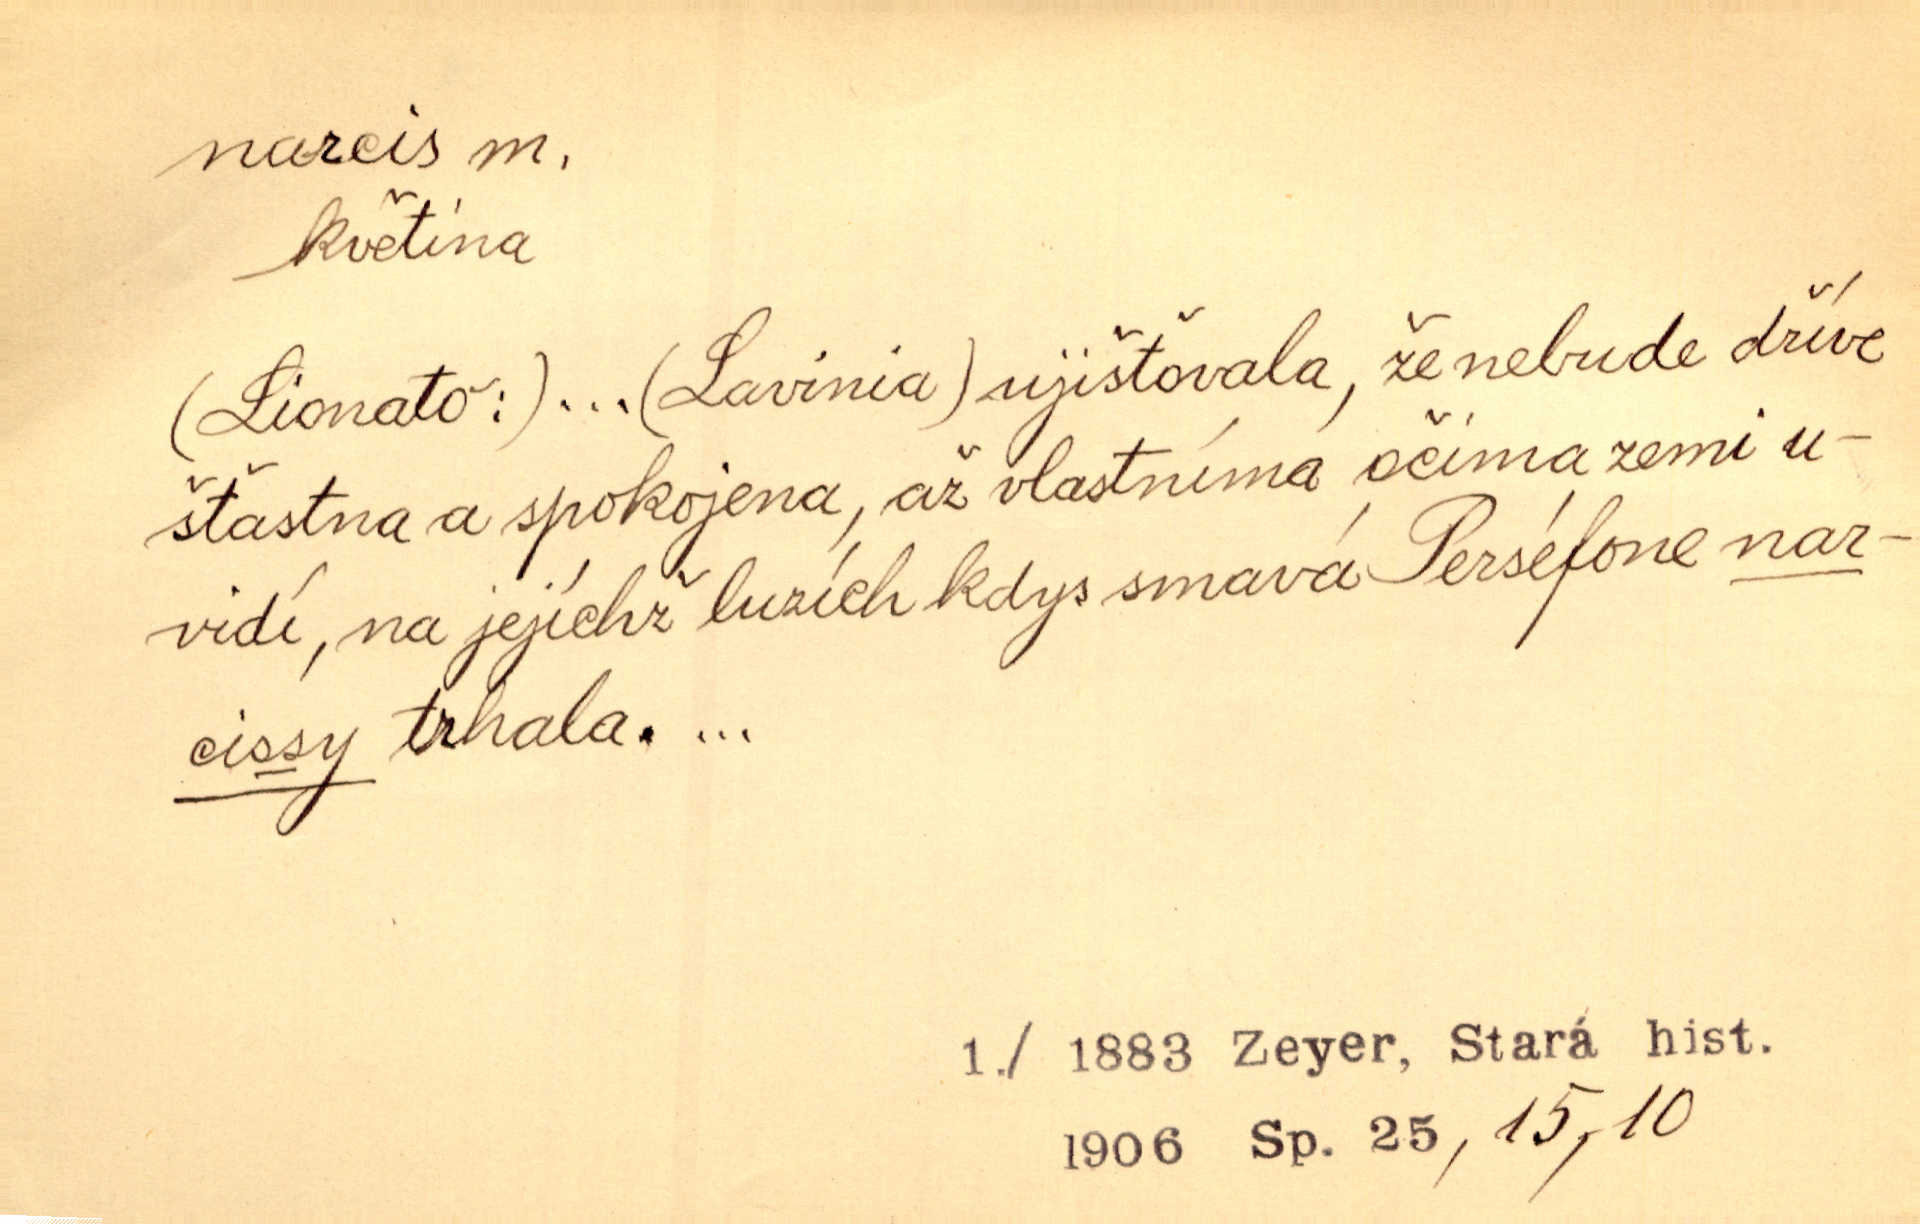 narcis m.
květina
(Lionato:)...(Lavinia) ujišťovala, že nebude dříve
šťastna a spokojena, až vlastníma očima zemi u-
vidí, na jejíchž luzích kdys smavá Perséfone nar-
cissy trhala. ...
1./ 1883 Zeyer, Stará hist.
1906 Sp. 25, 15, 10